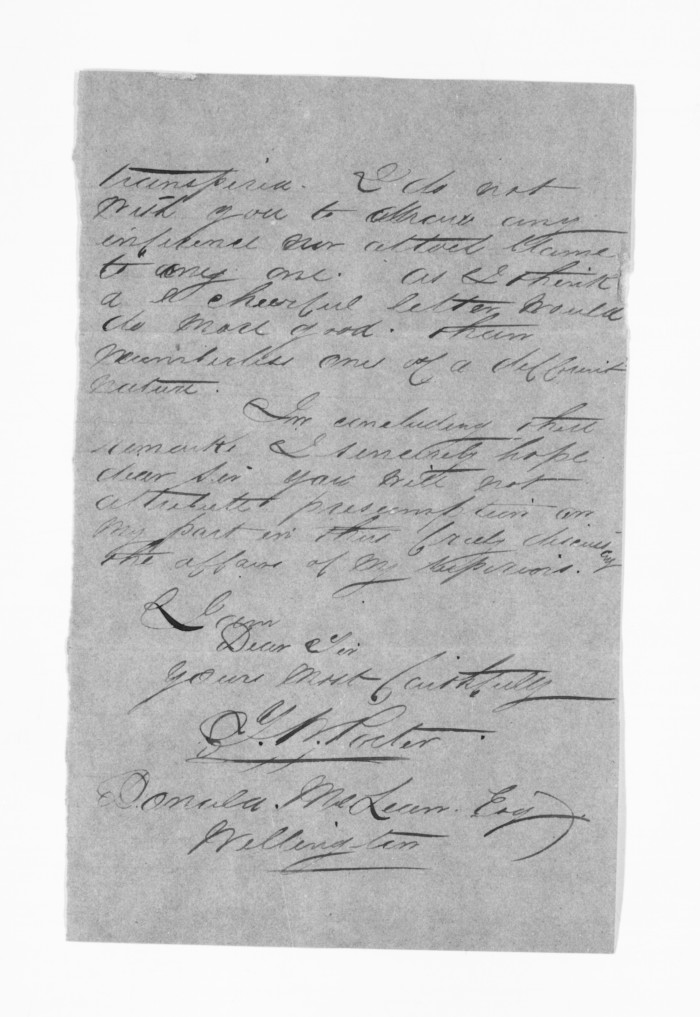 transpired. I do not
wish you to draw any
inference nor attach blame
to any one. as I think
a cheerful letter would
do more good. than
numberless ones of a different
nature.
In concluding these
remarks I sincerely hope
dear Sir you will not
attribute presumption on
my part in thus freely discussing
the affairs of my Superiors.
I am
Dear Sir
yours most faithfully
T. W. Porter
Donald McLean. Esq
Wellington